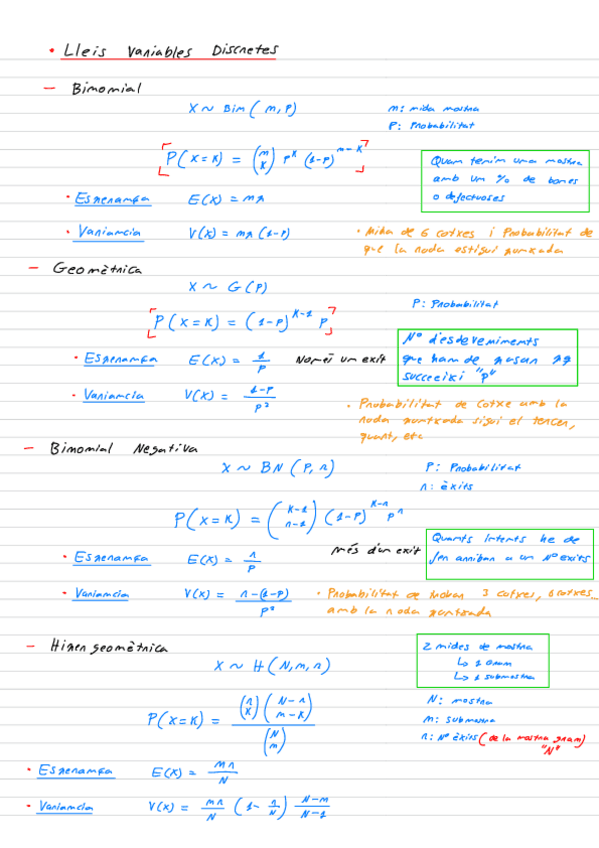 • Lleis Variables Discretes
- Binomial
X ~ Bin ( n, p)
n: mida mostra
P: Probabilitat
P( X = K ) = (n K) p^K (1-p)^n-K
Quan tenim una mostra
amb un % de bones
o defectuoses
• Esperança E(X) = np
• Variancia V(X) = np (1-p)
• Mida de 6 cotxes i Probabilitat de
que la roda estigui punxada
- Geomètrica
X ~ G (P)
P: Probabilitat
P( X = K ) = (1-p)^K-1 p
Nº d'esdeveniments
que han de passar
succeeixi "p"
• Esperança E(X) = 1/p Només un exit
• Variancia V(X) = 1-p/p²
• Probabilitat de cotxe amb la
roda punxada sigui el tercer,
quart, etc
- Binomial Negativa
X ~ BN ( P, r )
P: Probabilitat
r: èxits
P( X = K ) = (K-1 r-1) (1-p)^K-r p^r
Més d'un exit
Quants intents he de
fer arribar a un Nº exits
• Esperança E(X) = r/p
• Variancia V(X) = r-(1-p)/p²
• Probabilitat de trobar 3 cotxes, 6 cotxes...
amb la roda punxada
- Hipergeomètrica
X ~ H ( N, n, r )
2 mides de mostra
↳ 1 gran
↳ 1 submostra
P( X = K ) = (r K) (N-r n-K) / (N n)
N: mostra
n: submostra
r: Nº èxits (de la mostra gran)
"N"
• Esperança E(X) = nr/N
• Variancia V(X) = nr/N (1- r/N) N-n/N-1